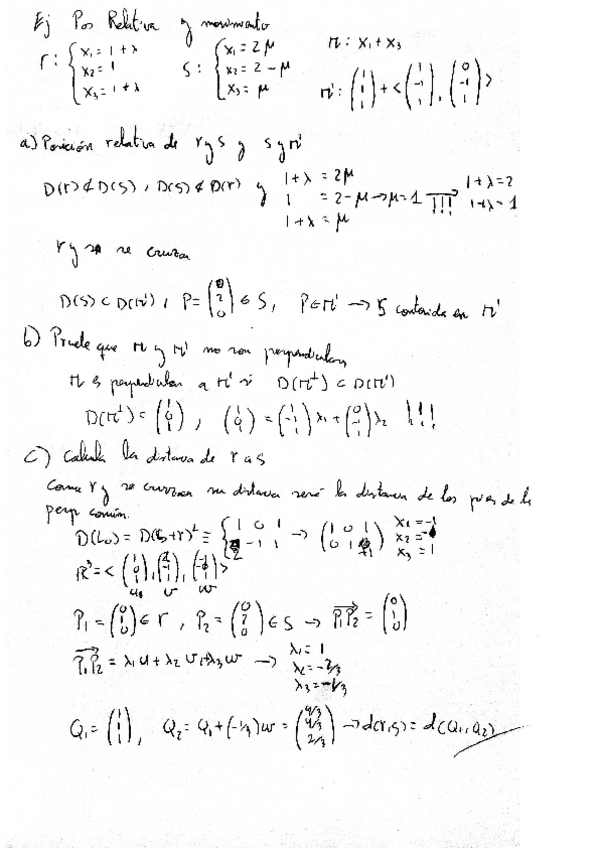 Ej Pos Relativa y movimiento
r: { x₁ = 1+λ, x₂ = 1, x₃ = 1+λ   s: { x₁ = 2μ, x₂ = 2-μ, x₃ = μ   π: x₁+x₃
π': (1 1 1) + <(1 -1 1), (0 -1 -1)>
a) Posición relativa de r y s y s y π'
D(r) ⊄ D(s), D(s) ⊄ D(r) y
1+λ = 2μ
1 = 2-μ → μ=1 ⟹ !!! 1+λ=2
1+λ = μ   1+λ=1
r y s se cruzan
D(s) ⊂ D(π'), P = (0 2 0) ∈ s, P ∈ π' → s contenida en π'
b) Pruebe que π y π' no son perpendiculares
π es perpendicular a π' si D(π^⊥) ⊂ D(π')
D(π^⊥) = (1 0 1), (1 0 1) = (1 -1 1) λ₁ + (0 -1 -1) λ₂ !!!
c) Calcula la distancia de r a s
Como r y s se cruzan su distancia será la distancia de los pies de la
perp común.
D(L₀) = D(s+r)^⊥ ≡ { 1 0 1, 2 -1 1 → (1 0 1, 0 1 1) x₁ = -1
x₂ = -1
x₃ = 1
R³ = <(1 0 1), (2 -1 1), (-1 -1 1)>
u v w
P₁ = (0 1 0) ∈ r, P₂ = (0 2 0) ∈ s → P₁P₂ = (0 1 0)
P₁P₂ = λ₁u + λ₂v + λ₃w → λ₁ = 1
λ₂ = -2/3
λ₃ = -1/3
Q₁ = (1 1 1), Q₂ = Q₁ + (-1/3)w = (4/3 4/3 2/3) → d(r,s) = d(Q₁,Q₂)